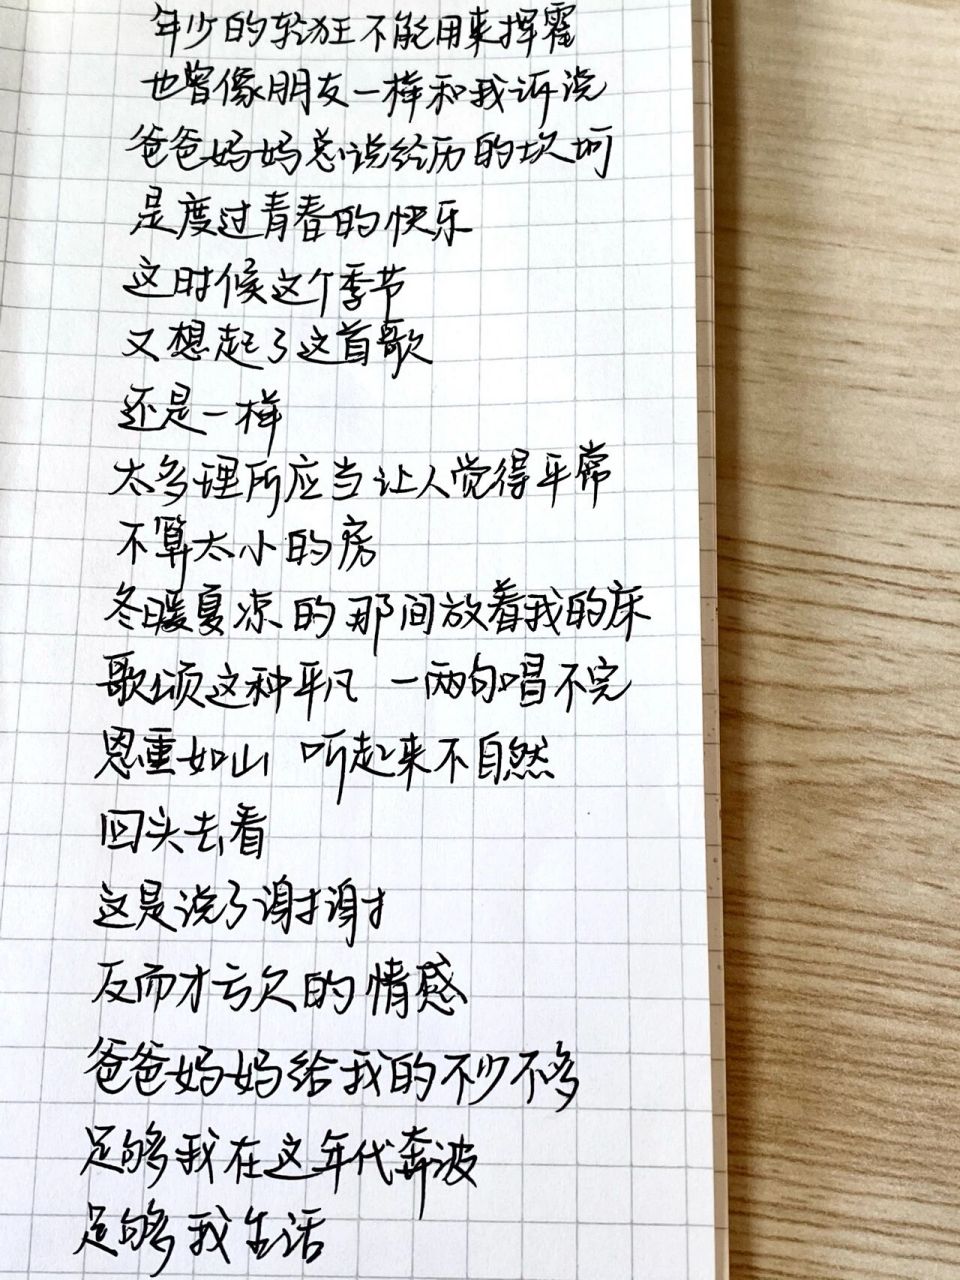 年少的轻狂不能用来挥霍
也曾像朋友一样和我诉说
爸爸妈妈总说经历的坎坷
是度过青春的快乐
这时候这个季节
又想起了这首歌
还是一样
太多理所应当让人觉得平常
不算太小的房
冬暖夏凉的那间放着我的床
歌颂这种平凡 一两句唱不完
恩重如山 听起来不自然
回头去看
这是说了谢谢
反而才亏欠的情感
爸爸妈妈给我的不少不多
足够我在这年代奔波
足够我生活